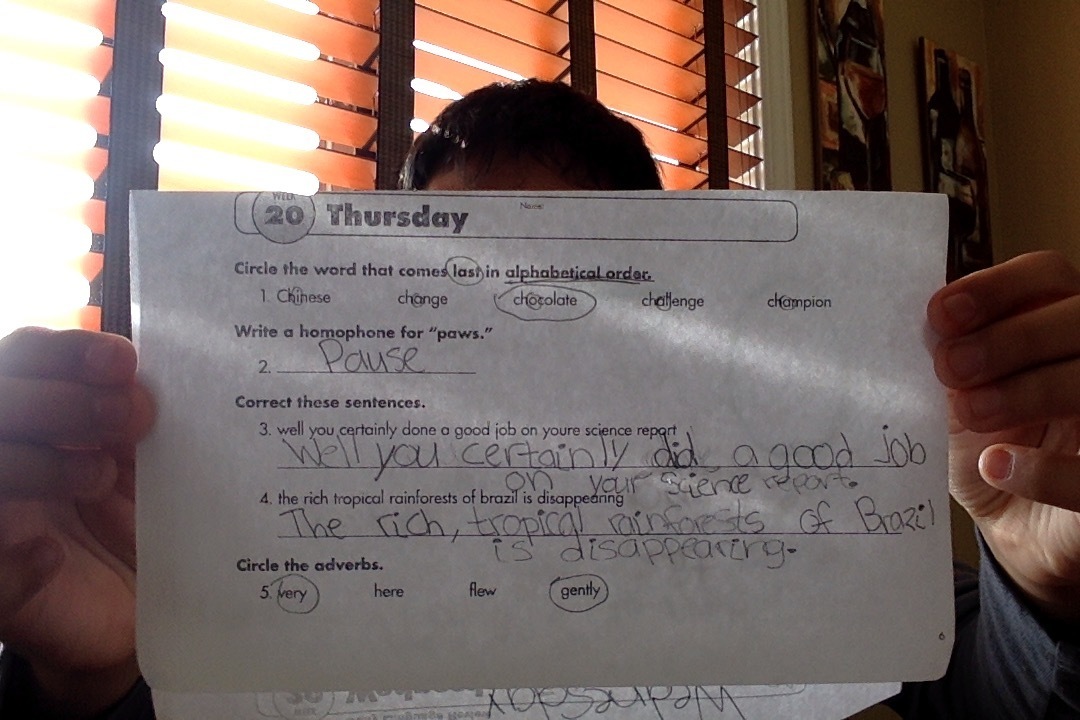 WEEK
20 Thursday
Name
Circle the word that comes last in alphabetical order.
1. Chinese change chocolate challenge champion
Write a homophone for “paws.”
2. Pause
Correct these sentences.
3. well you certainly done a good job on youre science report
Well you certainly did a good job
on your science report.
4. the rich tropical rainforests of brazil is disappearing
The rich, tropical rainforests of Brazil
is disappearing.
Circle the adverbs.
5. very here flew gently
6
Wednesday